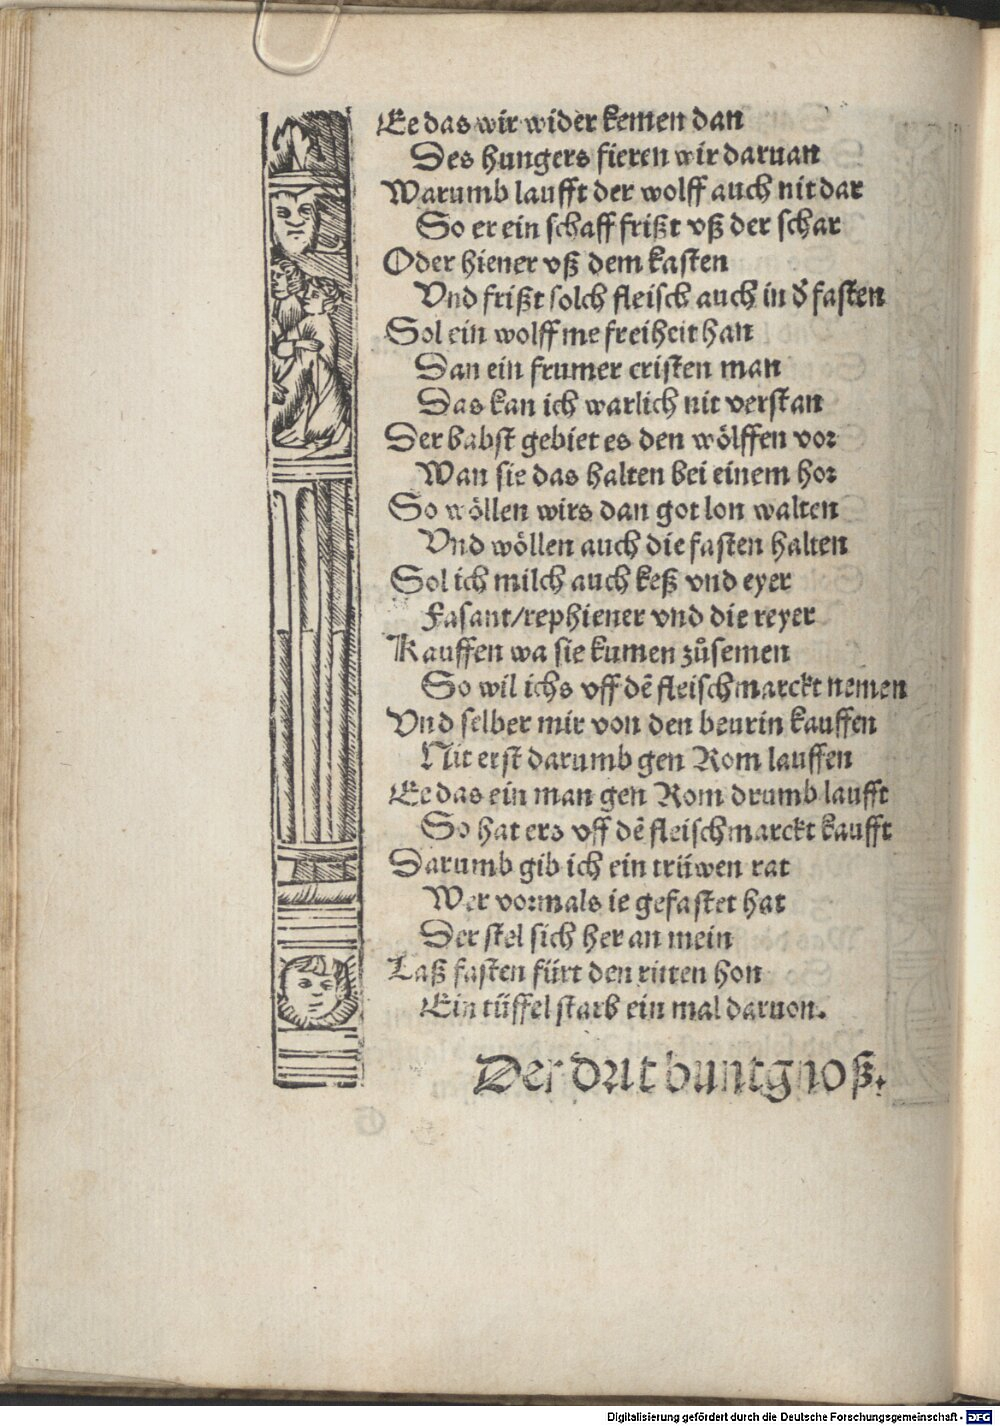 Ee das wir wider kemen dan
Des hungers fieren wir daruan
Warumb laufft der wolff auch nit dar
So er ein schaff frißt vß der schar
Oder hiener vß dem kasten
Vnd frißt solch fleisch auch in d̕ fasten
Sol ein wolff me freiheit han
Dan ein frumer cristen man
Das kan ich warlich nit verstan
Der babst gebiet es den wölffen vor
Wan sie das halten bei einem hor
So wöllen wirs dan got lon walten
Vnd wöllen auch die fasten halten
Sol ich milch auch keß vnd eyer
Fasant/rephiener vnd die reyer
Kauffen wa sie kumen zůsemen
So wil ichs vff dē fleischmarckt nemen
Vnd selber mir von den beurin kauffen
Nit erst darumb gen Rom lauffen
Ee das ein man gen Rom drumb laufft
So hat ers vff dē fleischmarckt kaufft
Darumb gib ich ein trüwen rat
Wer vormals ie gefastet hat
Der stel sich her an mein
Laß fasten fürt den ritten hon
Ein tüffel starb ein mal daruon.
Der drit buntgnoß.
Digitalisierung gefördert durch die Deutsche Forschungsgemeinschaft - DFG